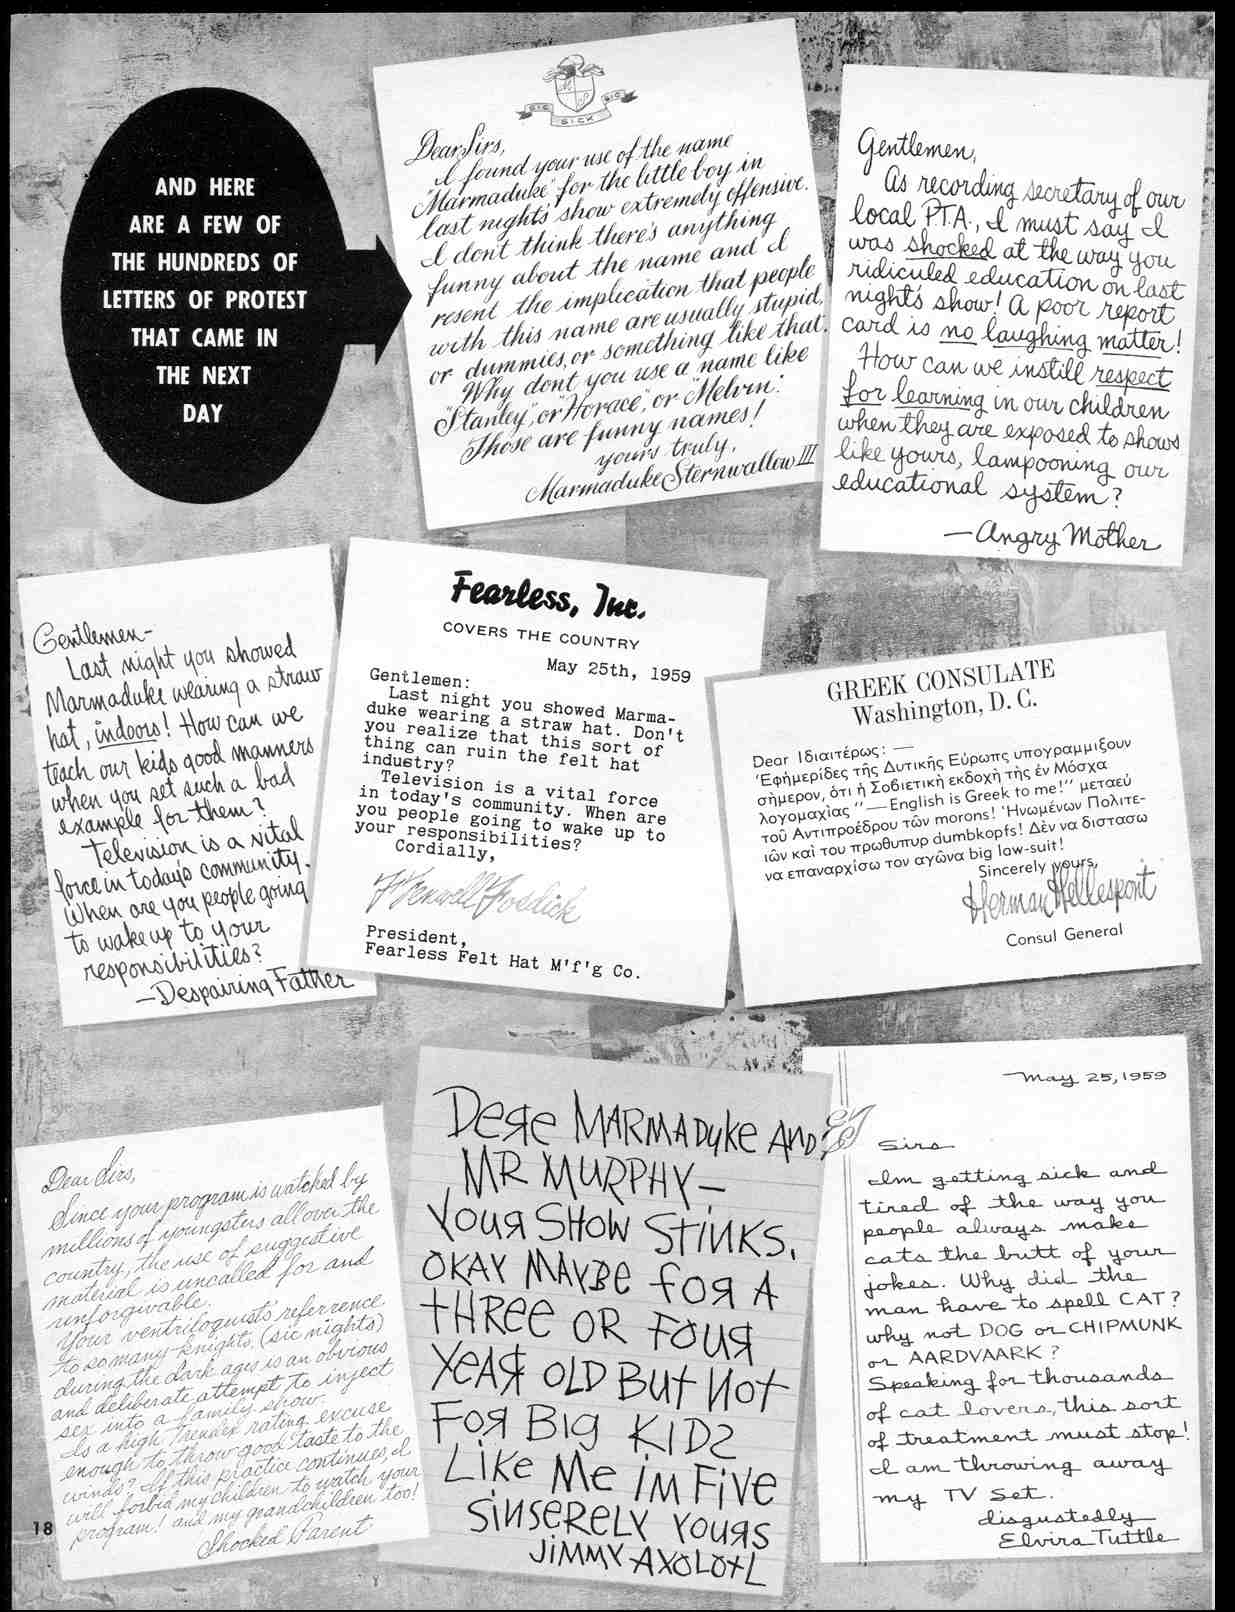 AND HERE
ARE A FEW OF
THE HUNDREDS OF
LETTERS OF PROTEST
THAT CAME IN
THE NEXT
DAY
SIC
SICK
SIC
Dear Sirs,
I found your use of the name
"Marmaduke", for the little boy in
last nights' show extremely offensive.
I don't think there's anything
funny about the name and I
resent the implication that people
with this name are usually stupid,
or dummies, or something like that.
Why don't you use a name like
"Stanley", or "Horace", or "Melvin".
Those are funny names!
yours truly,
Marmaduke Sternwallow III
Gentlemen,
As recording secretary of our
local P.T.A., I must say I
was shocked at the way you
ridiculed education on last
night's show! A poor report
card is no laughing matter!
How can we instill respect
for learning in our children
when they are exposed to shows
like yours, lampooning our
educational system?
—Angry Mother
Gentlemen-
Last night you showed
Marmaduke wearing a straw
hat, indoors! How can we
teach our kids good manners
when you set such a bad
example for them?
Television is a vital
force in today's community.
When are you people going
to wake up to your
responsibilities?
—Despairing Father
Fearless, Inc.
COVERS THE COUNTRY
May 25th, 1959
Gentlemen:
Last night you showed Marma-
duke wearing a straw hat. Don't
you realize that this sort of
thing can ruin the felt hat
industry?
Television is a vital force
in today's community. When are
you people going to wake up to
your responsibilities?
Cordially,
F. Fenwell Fosdick
President,
Fearless Felt Hat M'f'g Co.
GREEK CONSULATE
Washington, D. C.
Dear Ιδιαιτέρως: —
'Εφήμερίδες τῆς Δυτικῆς Εύρωπς υπογραμμιξουν
σήμερον, ότι ή Σοβιετική εκδοχή τῆς έν Μόσχα
λογομαχίας "— English is Greek to me!" μεταεύ
τοῦ Αντιπροέδρου τῶν morons! 'Ηνωμένων Πολιτε-
ιῶν καί του πρωθυπυρ dumbkopfs! Δὲν να διστασω
να επαναρχίσω τον αγῶνα big law-suit!
Sincerely yours,
Herman Hellespont
Consul General
Dear Sirs,
Since your program is watched by
millions of youngsters all over the
country, the use of suggestive
material is uncalled for and
unforgivable.
Your ventriloquists' referrence
to so many knights, (sic nights)
during the dark ages is an obvious
and deliberate attempt to inject
sex into a family show.
Is a high Trendex rating excuse
enough to throw good taste to the
winds? If this practice continues, I
will forbid my children to watch your
program! and my grandchildren too!
Shocked Parent
DERE MARMADUKE AND
MR MURPHY—
YOUR SHOW STINKS.
OKAY MAYBE FOR A
THREE OR FOUR
YEAR OLD BUT NOT
FOR BIG KIDS
LIKE ME IM FIVE
SINSERELY YOURS
JIMMY AXOLOTL
May 25, 1959
ET
Sirs
Im getting sick and
tired of the way you
people always make
cats the butt of your
jokes. Why did the
man have to spell CAT?
why not DOG or CHIPMUNK
or AARDVAARK?
Speaking for thousands
of cat lovers, this sort
of treatment must stop!
I am throwing away
my TV set.
disgustedly
Elvira Tuttle
18